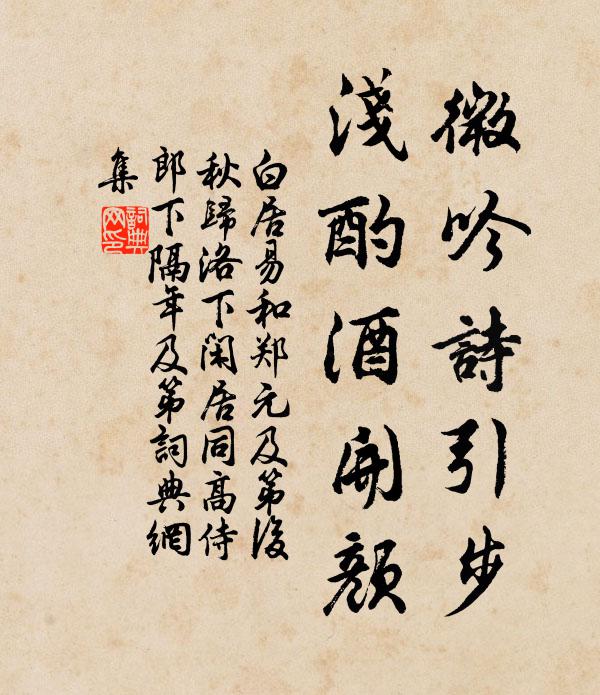 微吟詩引步
淺酌酒開顏
白居易和郑元及第後
秋歸洛下閑居同高侍
郎下隔年及第詞典網
集
詞典網印